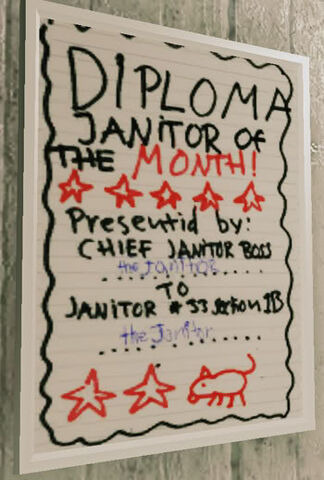 DIPLOMA
JANITOR OF
THE MONTH!
Presentid by:
CHIEF JANITOR BOSS
the JANitOR
TO
JANITOR # 33 section IB
the Janitor